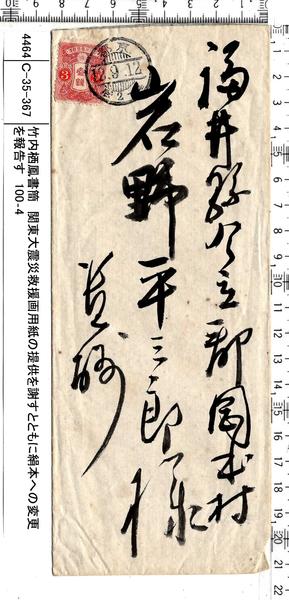 4464 C-35-367
竹内栖鳳書簡 関東大震災救援画用紙の提供を謝すとともに絹本への変更
を報告す 100-4
12.9.12
3
福井縣今立郡岡本村
岩野平三郎様
貴酬